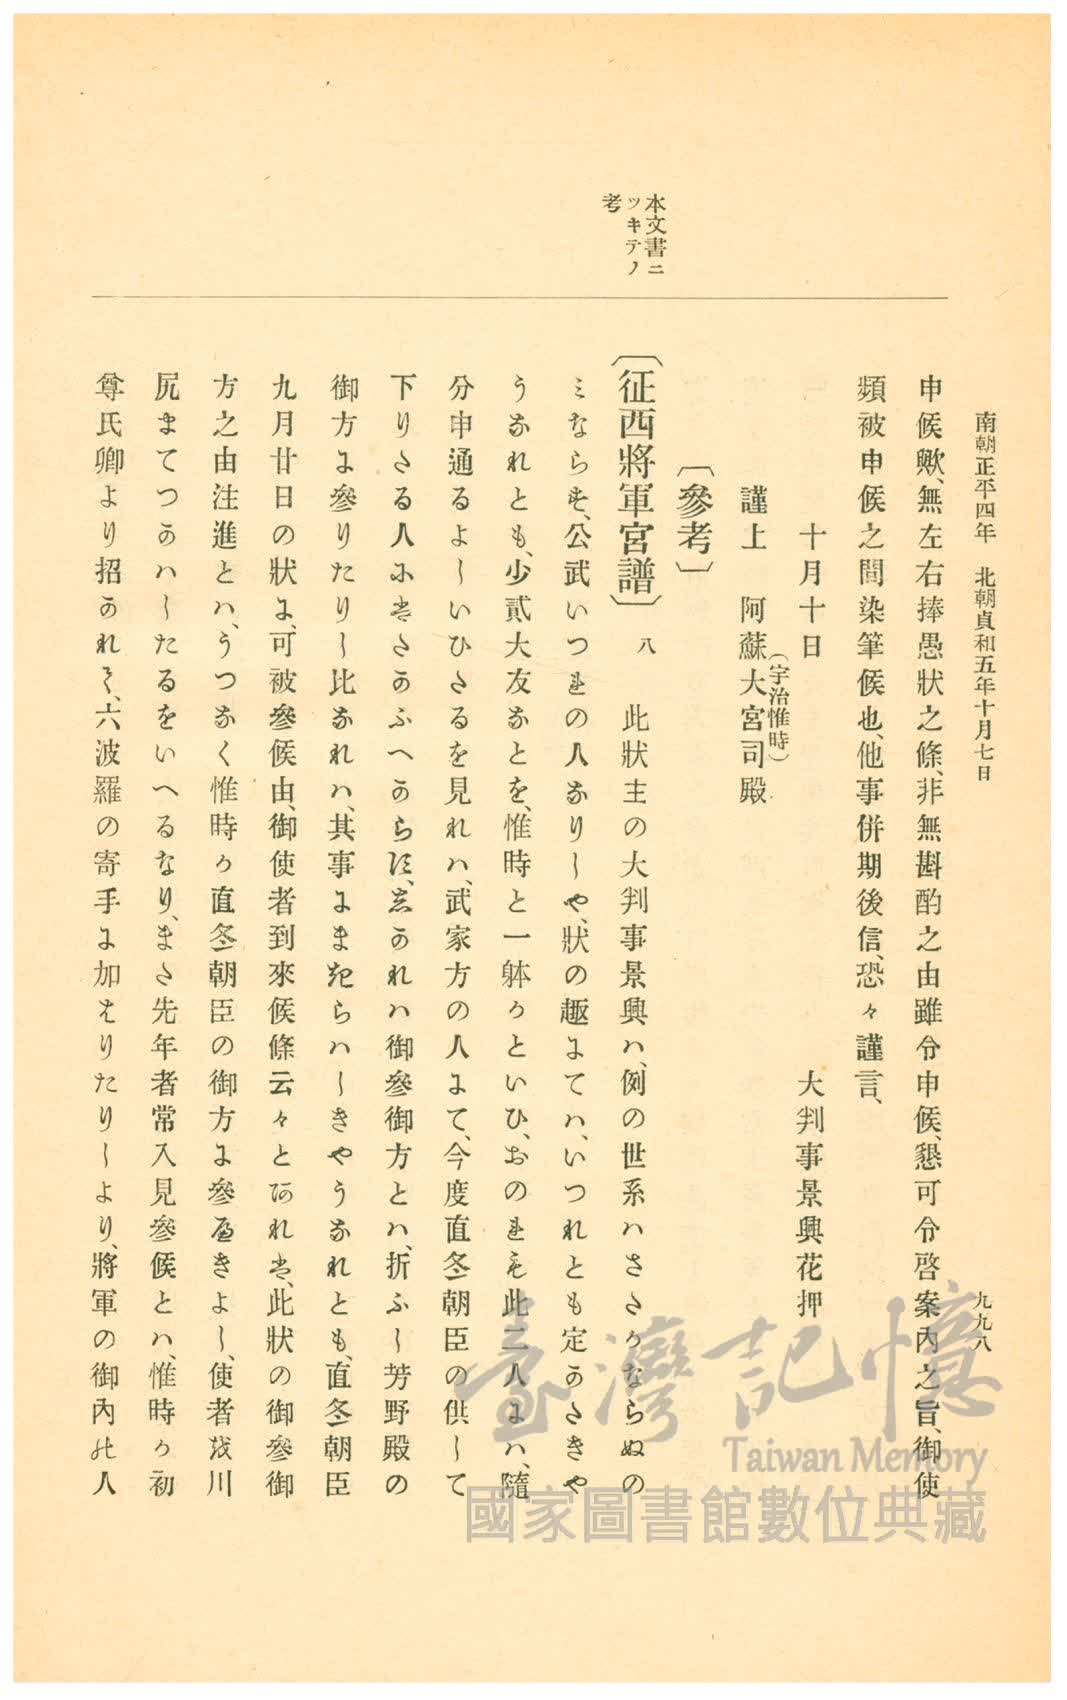 南朝正平四年 北朝貞和五年十月七日
九九八
本文書ニ
ツキテノ
考
申候歟、無左右捧愚狀之條、非無斟酌之由雖令申候、懇可令啓案內之旨、御使
頻被申候之間染筆候也、他事併期後信、恐々謹言、
十月十日 大判事景興花押
(宇治惟時)
謹上 阿蘇大宮司殿
〔參考〕
〔征西將軍宮譜〕 八 此狀主の大判事景興ハ、例の世系ハさたかならぬの
ミならす、公武いつれの人なりしや、狀の趣にてハ、いつれとも定かたきや
うなれとも、少貳大友なとを、惟時と一躰かといひ、おのれも此二人にハ、隨
分申通るよしいひたるを見れハ、武家方の人にて、今度直冬朝臣の供して
下りたる人にはたかふへからす、しかれハ御參御方とハ、折ふし芳野殿の
御方に參りたりし比なれハ、其事にまきらハしきやうなれとも、直冬朝臣
九月廿日の狀に、可被參候由、御使者到來候條云々とあれは、此狀の御參御
方之由注進とハ、うつなく惟時か直冬朝臣の御方に參へきよし、使者を川
尻まてつかハしたるをいへるなり、また先年者常入見參候とハ、惟時か初
尊氏卿より招かれて、六波羅の寄手に加はりたりしより、將軍の御內の人
臺灣記憶
Taiwan Memory
國家圖書館數位典藏